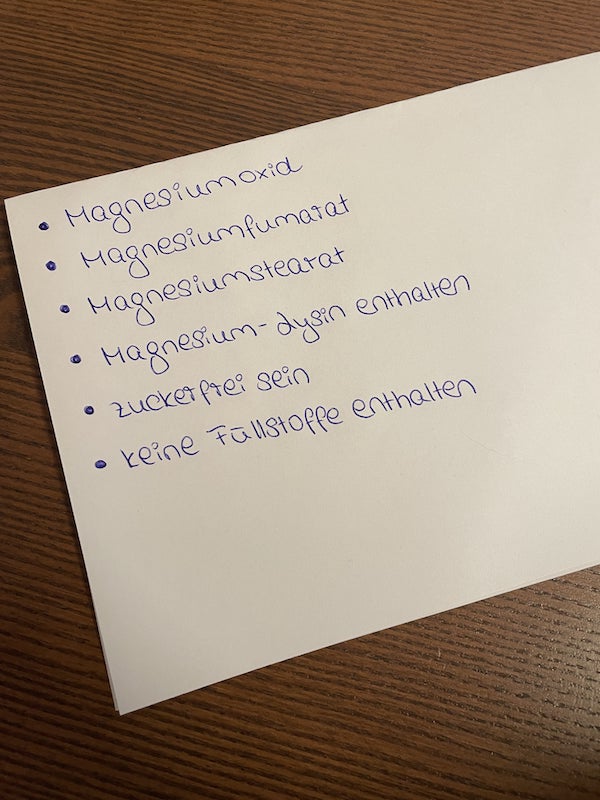 • Magnesiumoxid
• Magnesiumfumarat
• Magnesiumstearat
• Magnesium-Lysin enthalten
• zuckerfrei sein
• keine Füllstoffe enthalten